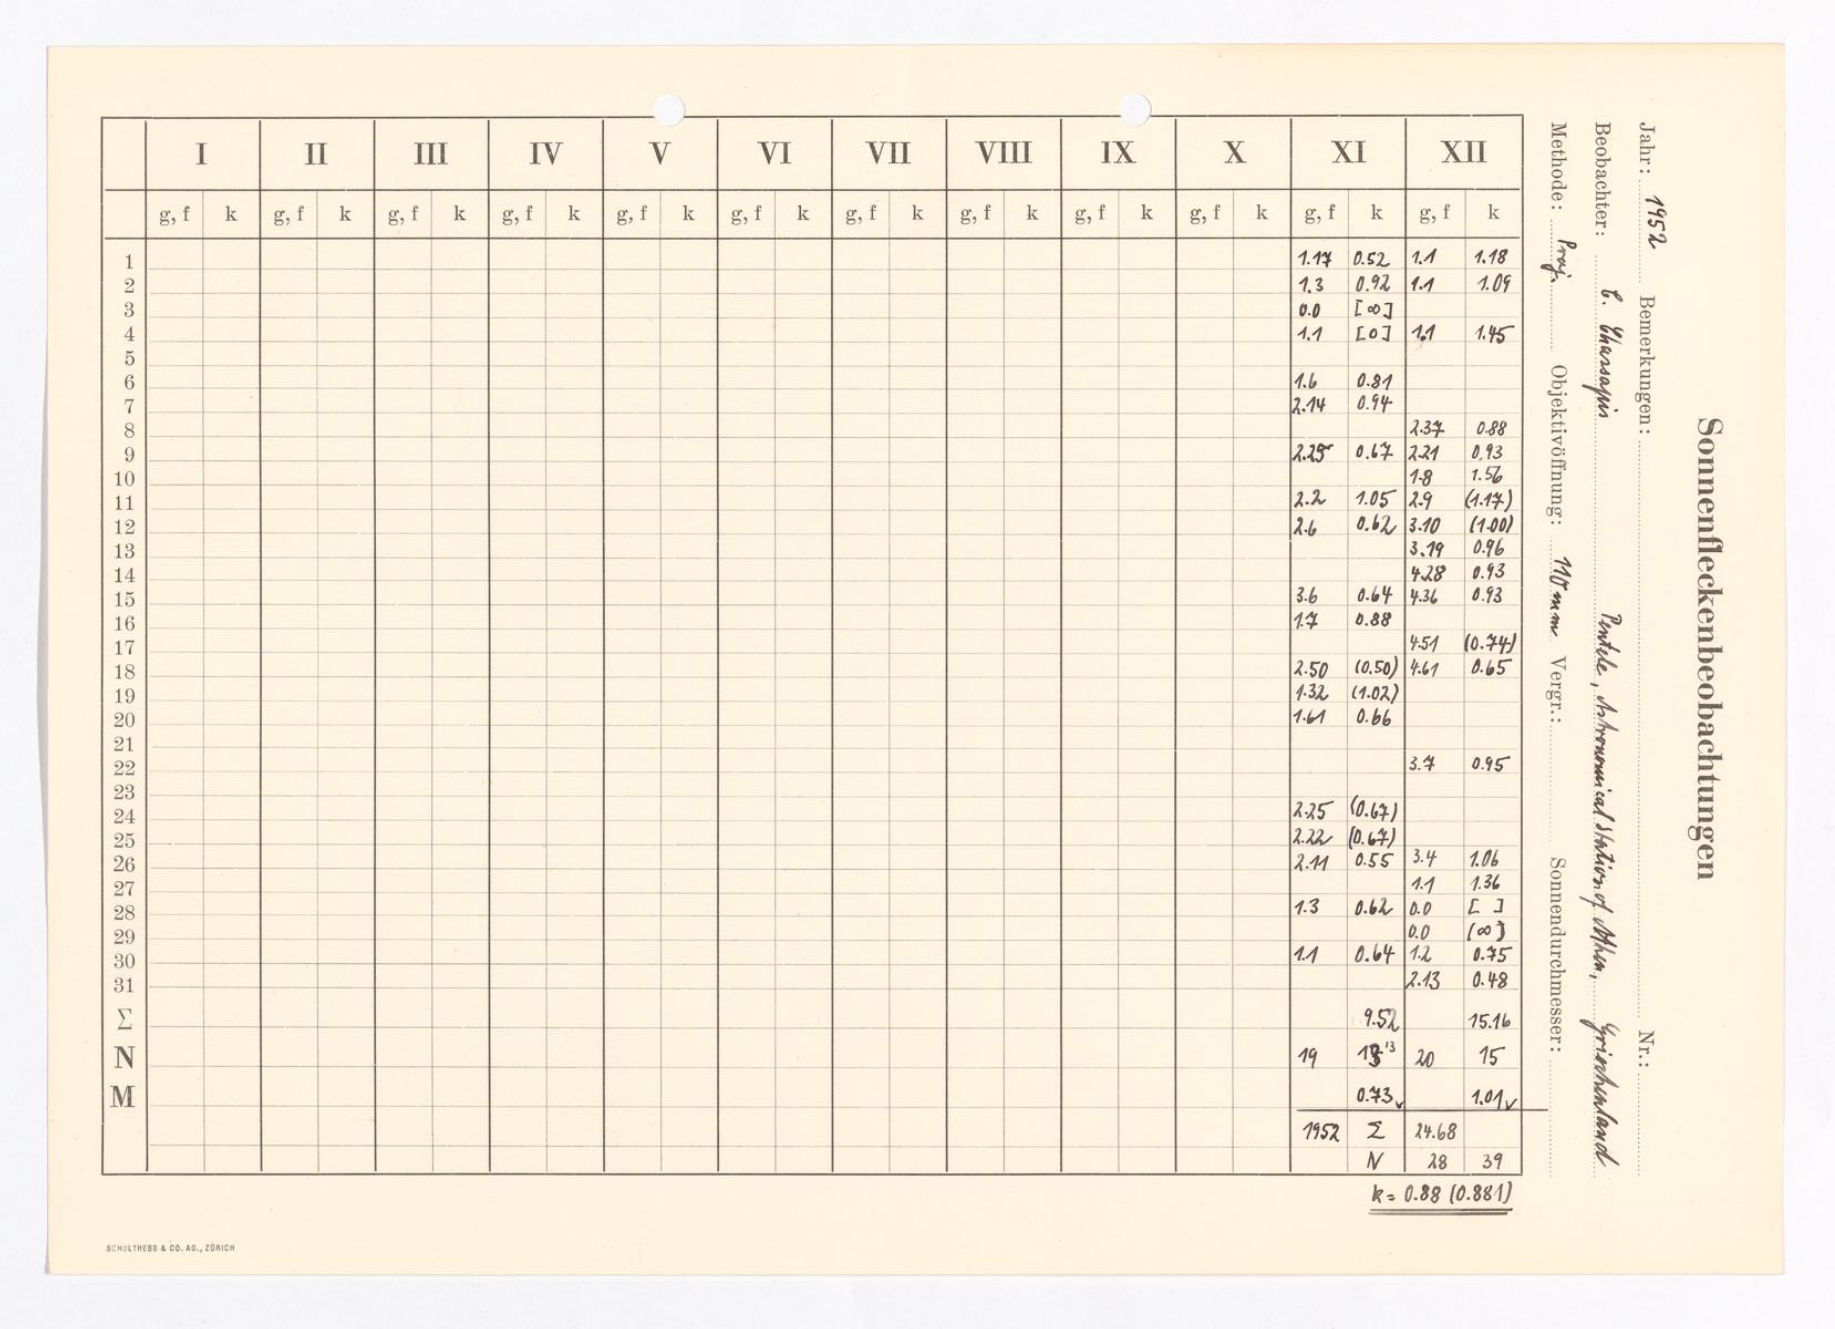 Sonnenfleckenbeobachtungen
Jahr: 1952 Bemerkungen: Nr.:
Beobachter: C. Chassapis Pentele, Astronomical Station of Athen, Griechenland
Methode: Proj. Objektivöffnung: 110 mm Vergr.: Sonnendurchmesser:
I II III IV V VI VII VIII IX X XI XII
g, f k g, f k g, f k g, f k g, f k g, f k g, f k g, f k g, f k g, f k g, f k g, f k
1 1.17 0.52 1.1 1.18
2 1.3 0.92 1.1 1.09
3 0.0 [∞]
4 1.1 [0] 1.1 1.45
5
6 1.6 0.81
7 2.14 0.94
8 2.37 0.88
9 2.25 0.67 2.21 0.93
10 1.8 1.56
11 2.2 1.05 2.9 (1.17)
12 2.6 0.62 3.10 (1.00)
13 3.19 0.96
14 4.28 0.93
15 3.6 0.64 4.36 0.93
16 1.7 0.88
17 4.51 (0.74)
18 2.50 (0.50) 4.61 0.65
19 1.32 (1.02)
20 1.61 0.66
21
22 3.7 0.95
23
24 2.25 (0.67)
25 2.22 (0.67)
26 2.11 0.55 3.4 1.06
27 1.1 1.36
28 1.3 0.62 0.0 [ ]
29 0.0 [∞]
30 1.1 0.64 1.2 0.75
31 2.13 0.48
Σ 9.52 15.16
N 19 13 20 15
M 0.73✓ 1.01✓
1952 Σ 24.68
N 28 39
k = 0.88 (0.881)
SCHULTHESS & CO. AG., ZÜRICH